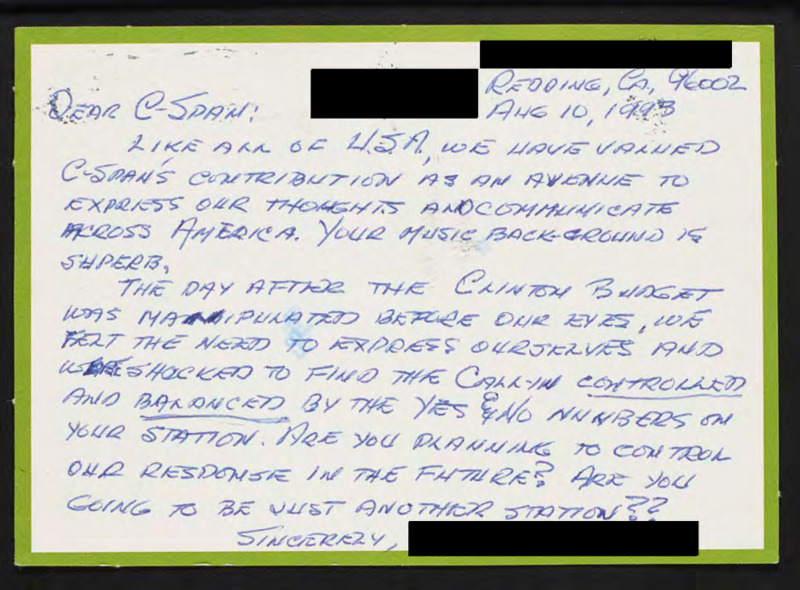 REDDING, CA, 96002
DEAR C-SPAN: AUG 10, 1993
LIKE ALL OF U.S.A, WE HAVE VALUED
C-SPAN'S CONTRIBUTION AS AN AVENUE TO
EXPRESS OUR THOUGHTS AND COMMUNICATE
ACROSS AMERICA. YOUR MUSIC BACK-GROUND IS
SUPERB.
THE DAY AFTER THE CLINTON BUDGET
WAS MANIPULATED BEFORE OUR EYES, WE
FELT THE NEED TO EXPRESS OURSELVES AND
WERE SHOCKED TO FIND THE CALL-IN CONTROLLED
AND BALANCED BY THE YES & NO NUMBERS ON
YOUR STATION. ARE YOU PLANNING TO CONTROL
OUR RESPONSE IN THE FUTURE? ARE YOU
GOING TO BE JUST ANOTHER STATION??
SINCERELY,